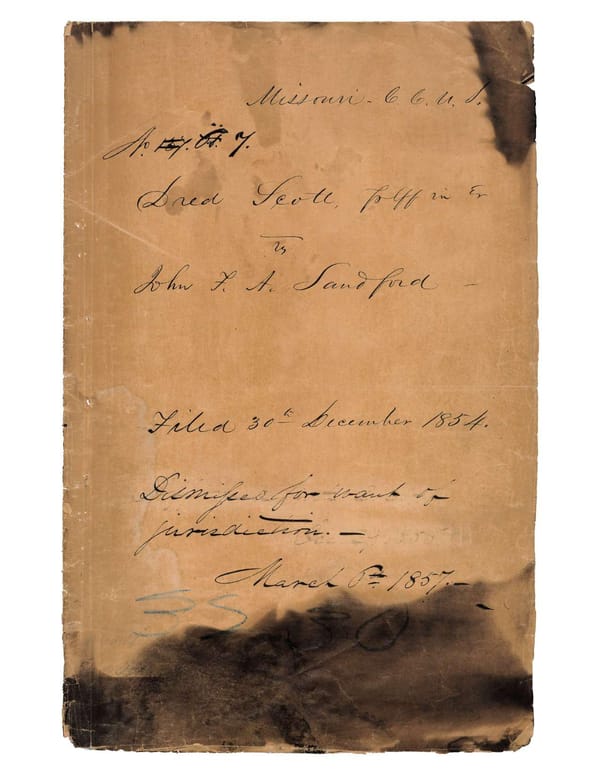 Missouri - C C. U. S.
No. 7.
Dred Scott, Plff in Er
vs
John F. A. Sandford -
Filed 30th December 1854.
Dismissed for want of
jurisdiction. -
March 6th 1857. -